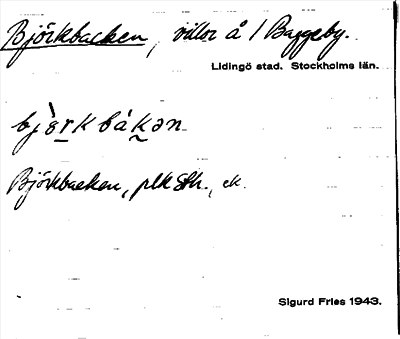 Björkbacken, villor å 1 Baggeby.
Lidingö stad. Stockholms län.
björkbakən
Björkbacken, plk Sth., ek.
Sigurd Fries 1943.